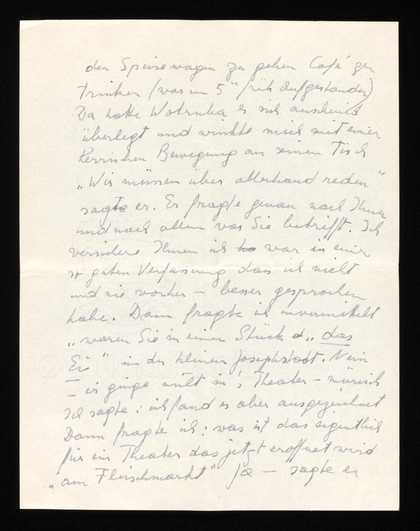 den Speisewagen zu gehen Café zu
trinken (war um 5h früh aufgestanden)
Da hatte Wotruba es sich anscheind
überlegt und winkte mich mit einer
herrischen Bewegung an seinen Tisch
„Wir müssen über allerhand reden"
sagte er. Er fragte genau nach Ihnen
und nach allem was Sie betrifft. Ich
versichere Ihnen ich war in einer
so guten Verfassung das ich nicht
und nie vorher – besser gesprochen
habe. Dann fragte ich unvermittelt
„waren Sie in einem Stück „das
Ei" in der kleinen Josephstadt. Nein
– er ginge nicht in's Theater – mürrisch
Ich sagte: ich fand es aber ausgezeichnet
Dann fragte ich: was ist das eigentlich
für ein Theater das jetzt eröffnet wird
„am Fleischmarkt" Ja – sagte er